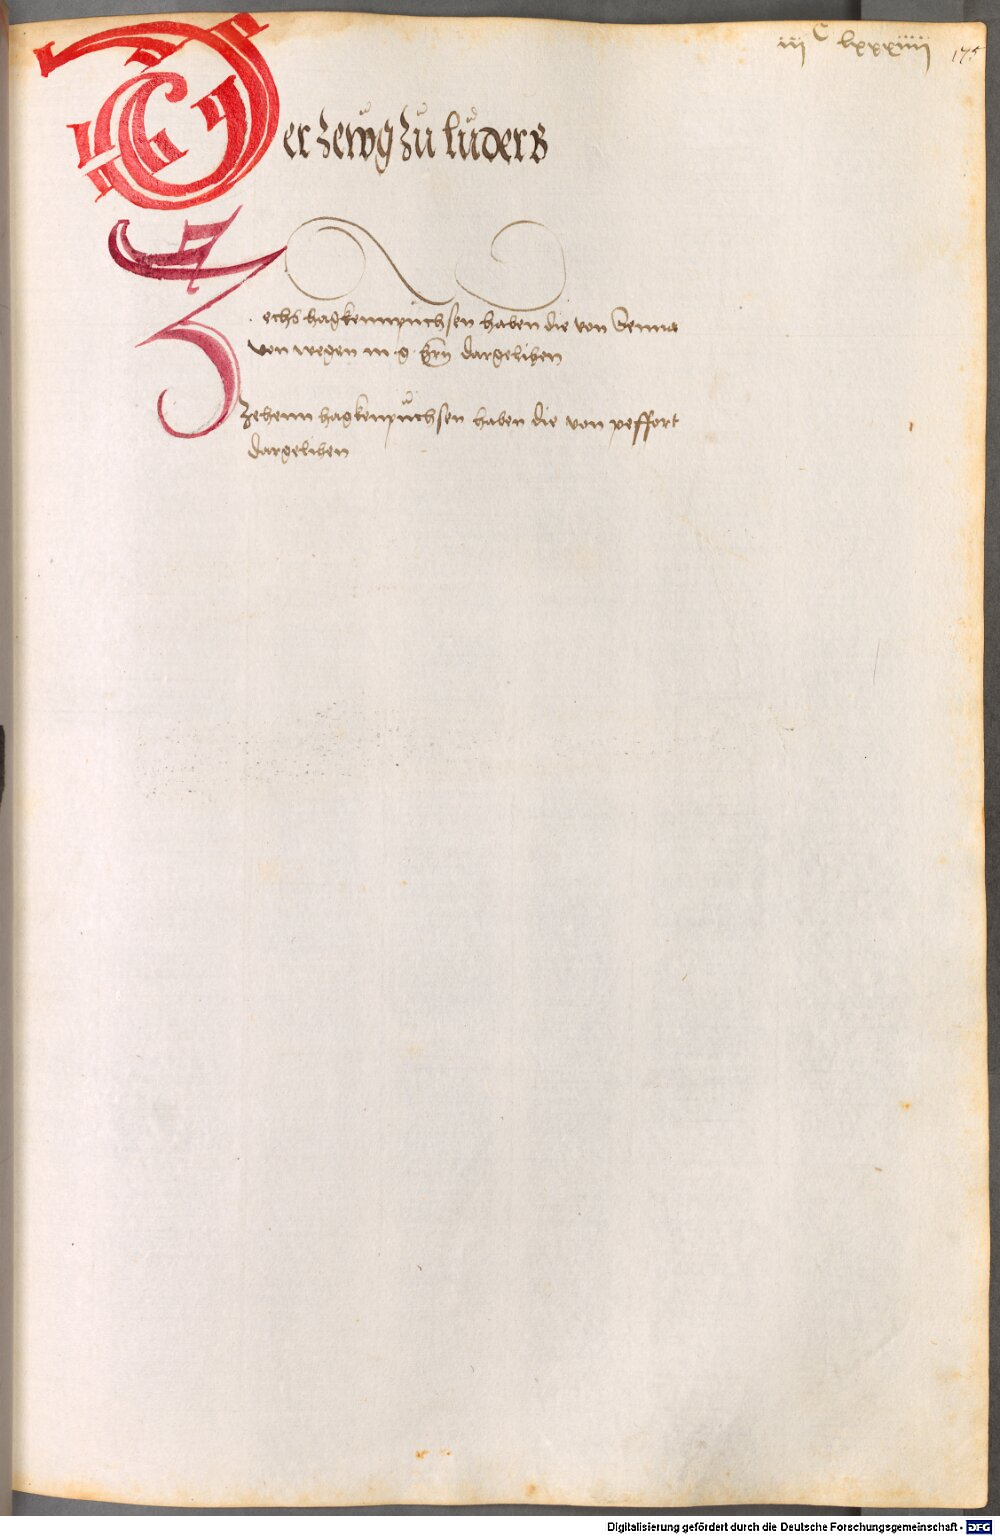 iii C lxxxiiii 175
Der zewg zu lŭders
Zechs hagkennpŭchsen haben die von Senna
von wegen m g hrn dargelihen
Zehenn hagkenpŭchsen haben die von peffort
dargelihen
Digitalisierung gefördert durch die Deutsche Forschungsgemeinschaft - DFG